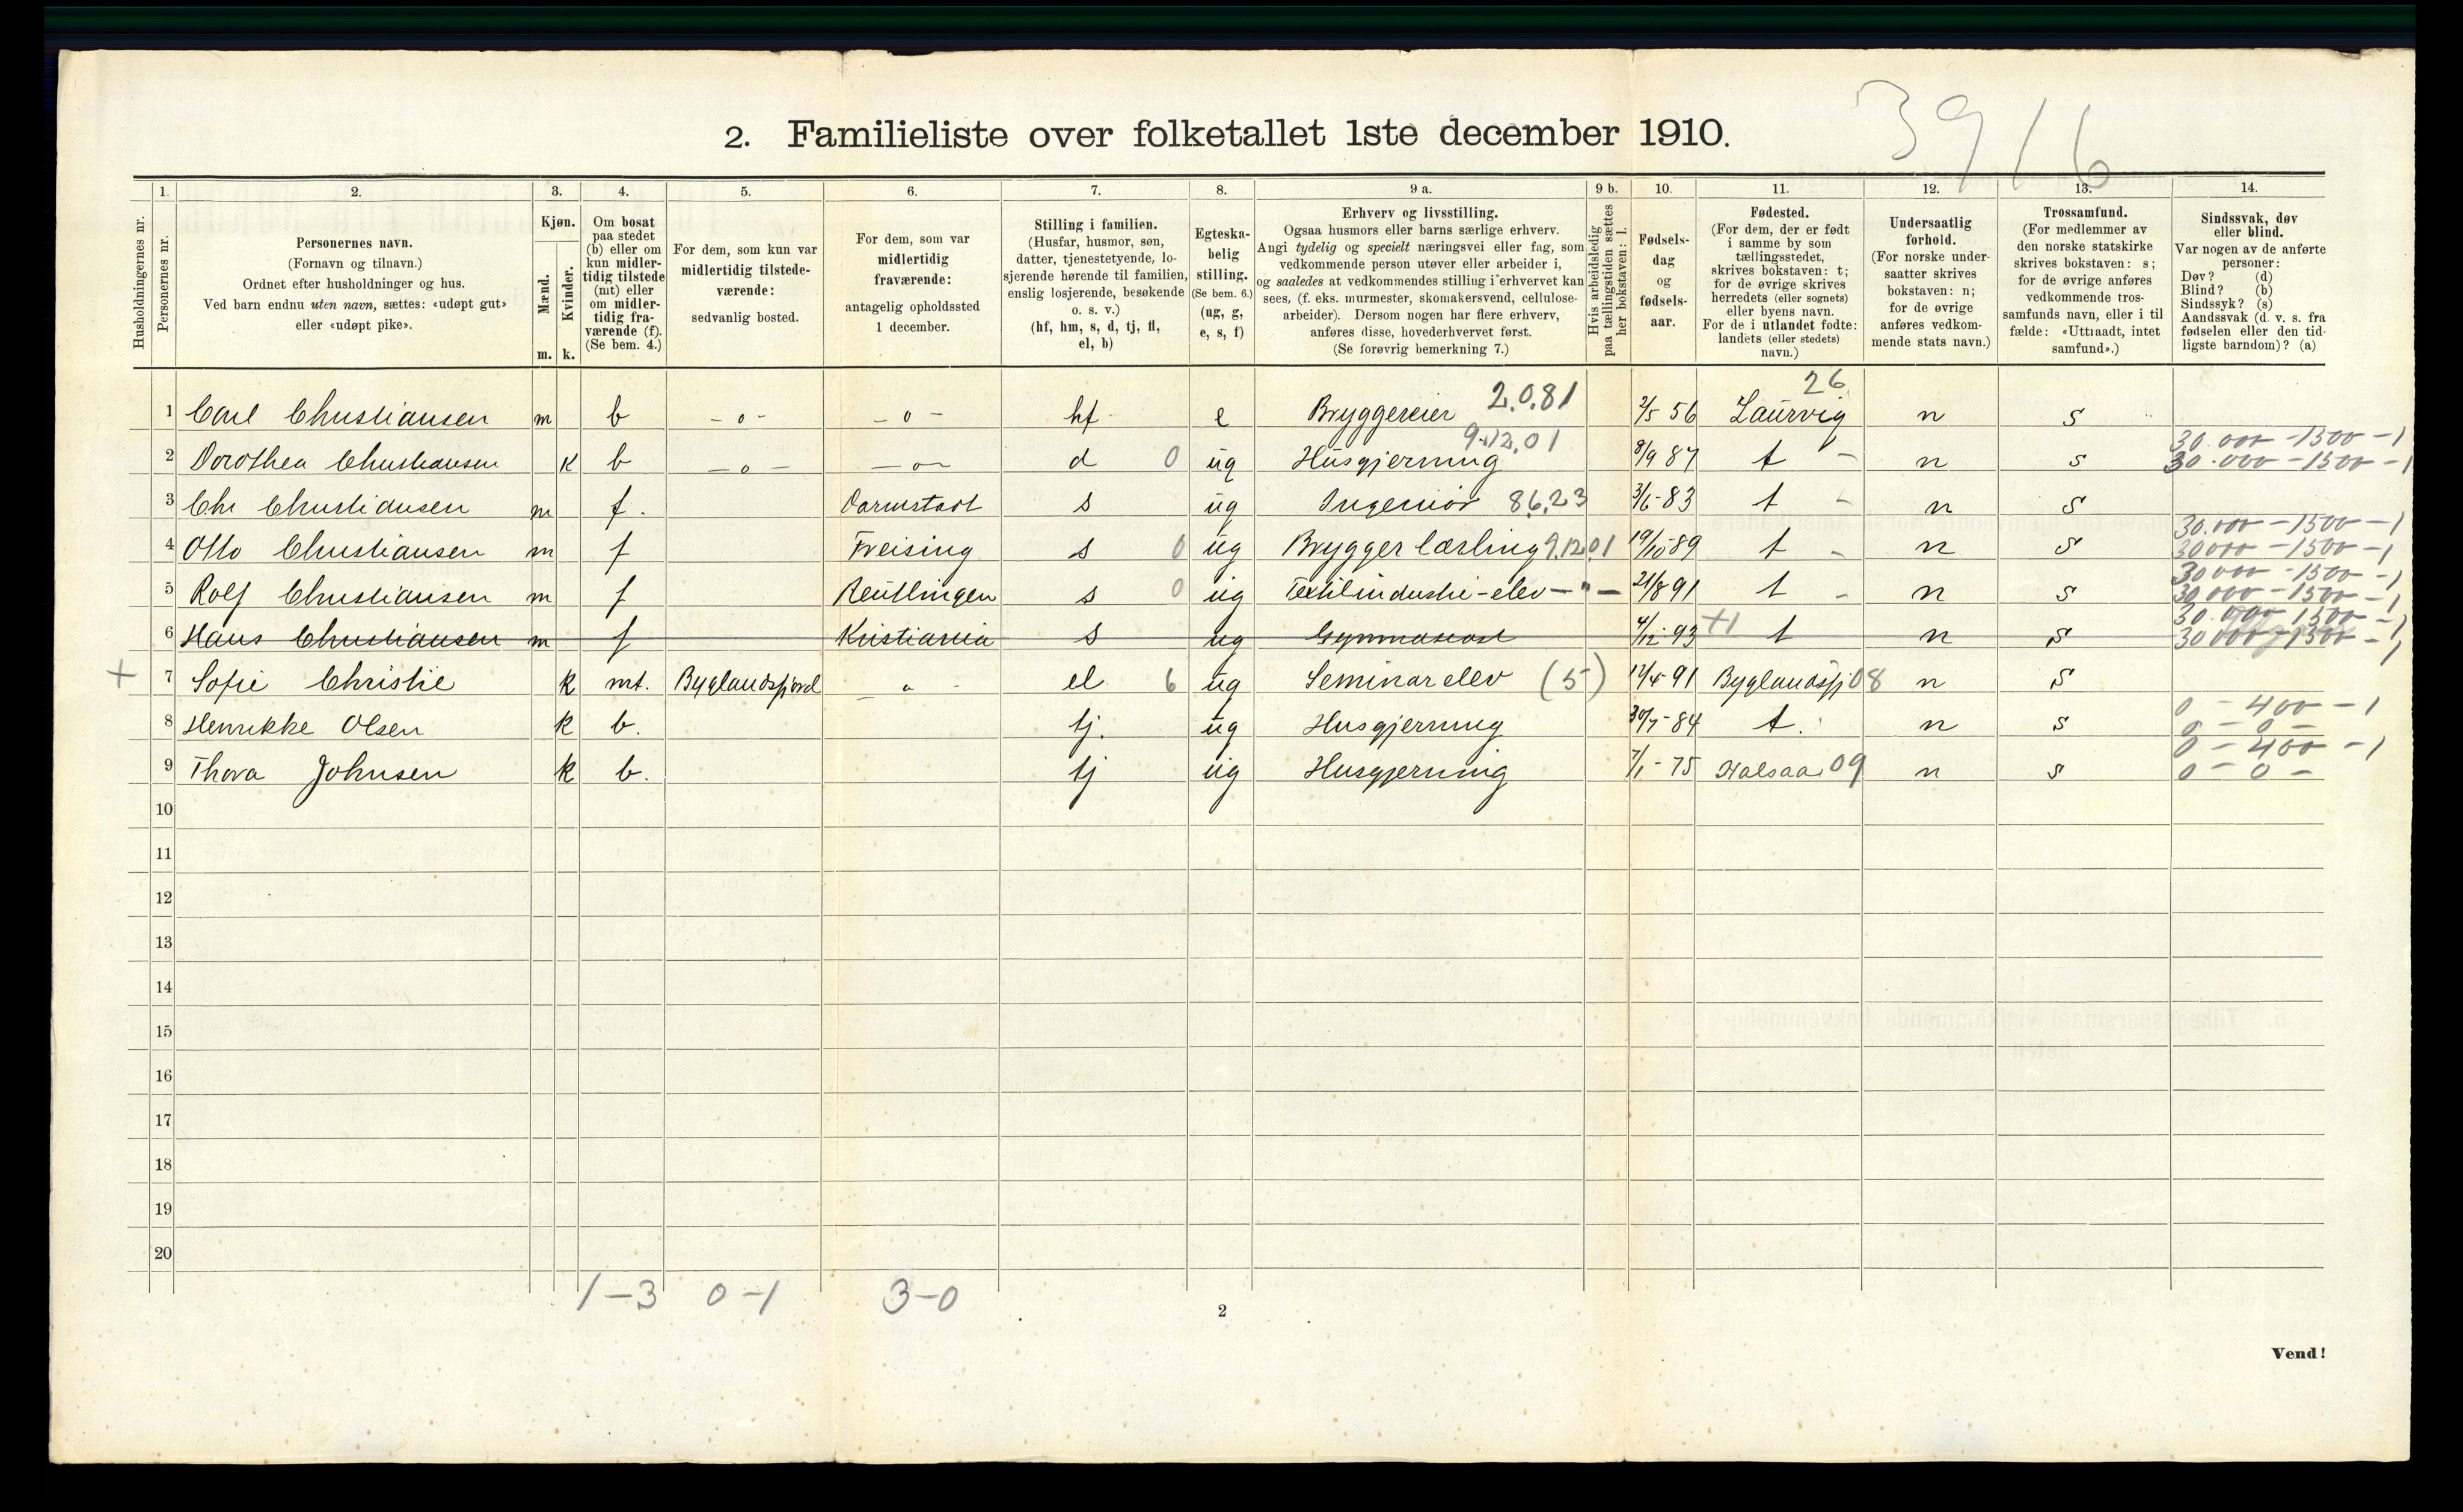 3916
2. Familieliste over folketallet 1ste december 1910.
1. 2. 3. 4. 5. 6. 7. 8. 9 a. 9 b. 10. 11. 12. 13. 14.
Husholdningernes nr.
Personernes nr.
Personernes navn.
(Fornavn og tilnavn.)
Ordnet efter husholdninger og hus.
Ved barn endnu uten navn, sættes: «udøpt gut»
eller «udøpt pike».
Kjøn.
Mænd.
Kvinder.
m. k.
Om bosat
paa stedet
(b) eller om
kun midler-
tidig tilstede
(mt) eller
om midler-
tidig fra-
værende (f).
(Se bem. 4.)
For dem, som kun var
midlertidig tilstede-
værende:
sedvanlig bosted.
For dem, som var
midlertidig
fraværende:
antagelig opholdssted
1 december.
Stilling i familien.
(Husfar, husmor, søn,
datter, tjenestetyende, lo-
sjerende hørende til familien,
enslig losjerende, besøkende
o. s. v.)
(hf, hm, s, d, tj, fl,
el, b)
Egteska-
belig
stilling.
(Se bem. 6.)
(ug, g,
e, s, f)
Erhverv og livsstilling.
Ogsaa husmors eller barns særlige erhverv.
Angi tydelig og specielt næringsvei eller fag, som
vedkommende person utøver eller arbeider i,
og saaledes at vedkommendes stilling i erhvervet kan
sees, (f. eks. murmester, skomakersvend, cellulose-
arbeider). Dersom nogen har flere erhverv,
anføres disse, hovederhvervet først.
(Se forøvrig bemerkning 7.)
Hvis arbeidsledig
paa tællingstiden sættes
her bokstaven: l.
Fødsels-
dag
og
fødsels-
aar.
Fødested.
(For dem, der er født
i samme by som
tællingsstedet,
skrives bokstaven: t;
for de øvrige skrives
herredets (eller sognets)
eller byens navn.
For de i utlandet fødte:
landets (eller stedets)
navn.)
Undersaatlig
forhold.
(For norske under-
saatter skrives
bokstaven: n;
for de øvrige
anføres vedkom-
mende stats navn.)
Trossamfund.
(For medlemmer av
den norske statskirke
skrives bokstaven: s;
for de øvrige anføres
vedkommende tros-
samfunds navn, eller i til
fælde: «Uttraadt, intet
samfund».)
Sindssvak, døv
eller blind.
Var nogen av de anførte
personer:
Døv? (d)
Blind? (b)
Sindssyk? (s)
Aandssvak (d. v. s. fra
fødselen eller den tid-
ligste barndom)? (a)
26
1 Carl Christiansen m b – o – – o – hf e Bryggereier 2.0.81 2/5 56 Laurvig n s
9.12.01 30.000 – 1500 – 1
2 Dorothea Christiansen k b – o – – o – d 0 ug Husgjerning 8/9 87 t – n s 30.000 – 1500 – 1
3 Chr Christiansen m f. Darmstadt s ug Ingeniør 8.6.23 3/6-83 t – n s
30.000 – 1500 – 1
4 Otto Christiansen m f Freising s 0 ug Brygger lærling 9.12.01 19/10 89 t – n s 30000 – 1500 – 1
30000 – 1500 – 1
5 Rolf Christiansen m f Reutlingen s 0 ug Textilindustri-elev – " – 21/8 91 t – n s 30000 – 1500 – 1
30.000 1500 – 1
6 Hans Christiansen m f Kristiania s ug Gymnasiast 4/12-93 +1 t n s 30000 – 1500 – 1
+ 7 Sofie Christie k mt. Byglandsfjord – o – el 6 ug Seminar elev (5) 12/4-91 Byglandsfj 08 n s
0 – 400 – 1
8 Henrikke Olsen k b. tj. ug Husgjerning 30/7-84 t. n s 0 – 0 –
0 – 400 – 1
9 Thora Johnsen k b. tj ug Husgjerning 7/1-75 Halsaa 09 n s 0 – 0 –
10
11
12
13
14
15
16
17
18
19
20
1–3 0–1 3–0
2
Vend!